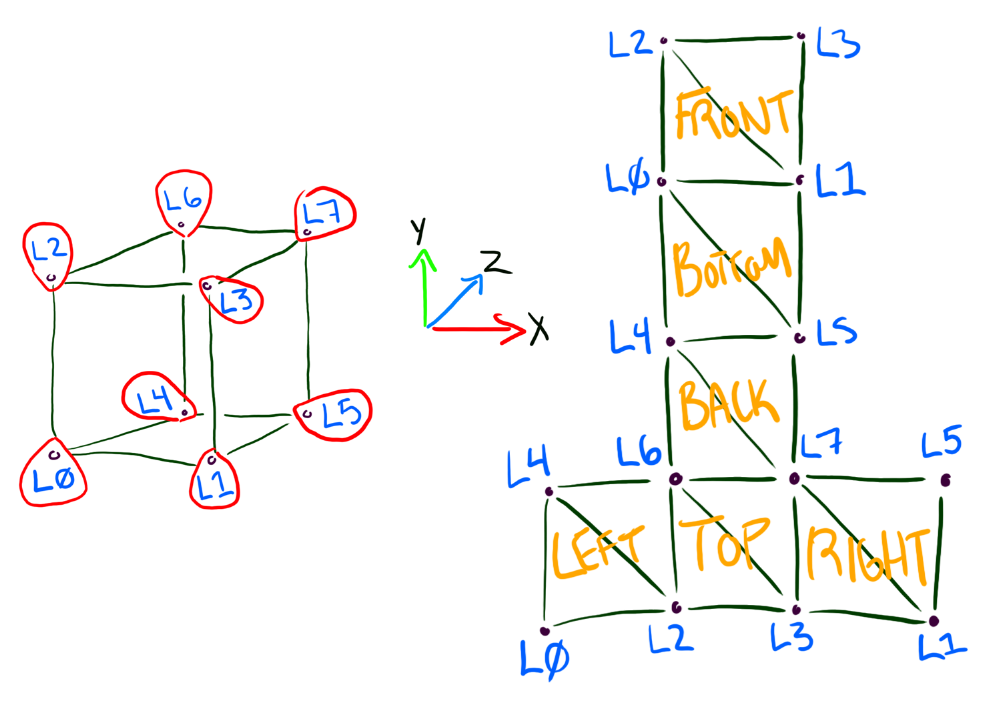 L6
L7
L2
L3
L4
L5
LØ
L1
Y
Z
X
L2 L3
FRONT
LØ L1
BOTTOM
L4 L5
BACK
L4 L6 L7 L5
LEFT TOP RIGHT
LØ L2 L3 L1